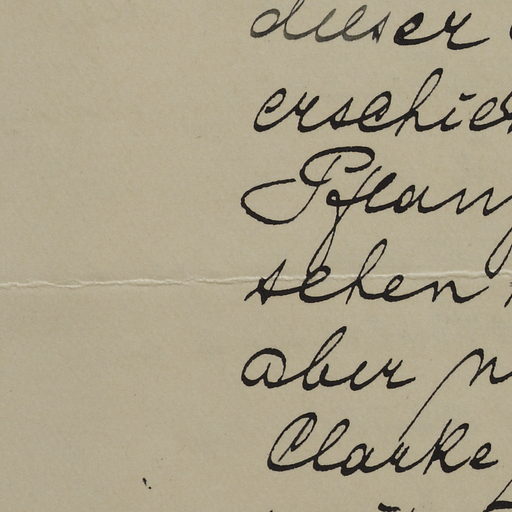 dieser
erschie
Pflan
sehen
aber
Clarke